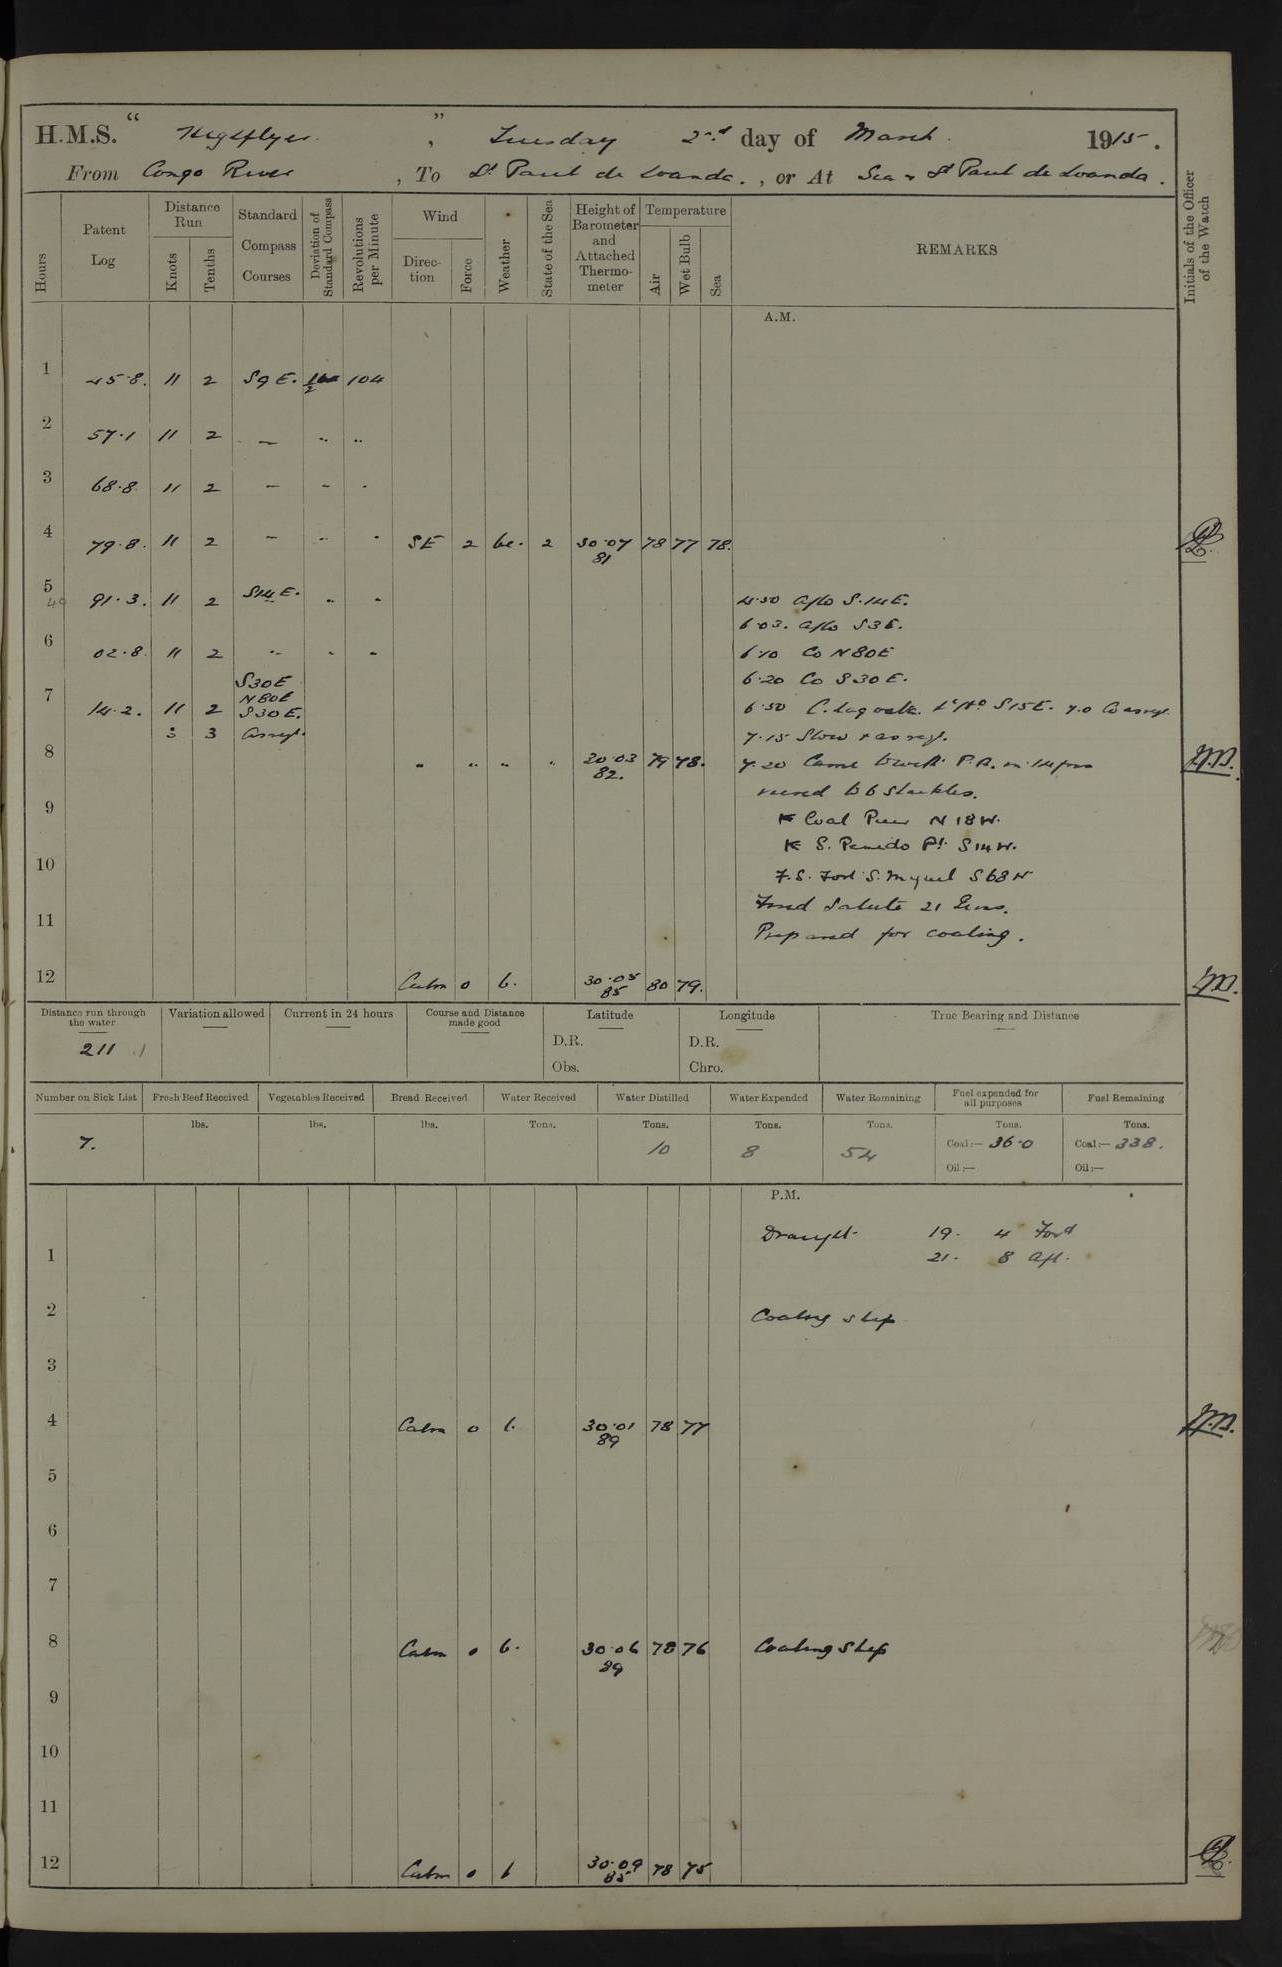 H.M.S. " Highflyer ", Tuesday 2nd day of March 1915.
From Congo River, To St Paul de Loanda., or At Sea & St Paul de Loanda.
Hours
Patent Log
Distance Run
Knots
Tenths
Standard Compass Courses
Deviation of Standard Compass
Revolutions per Minute
Wind
Direction
Force
Weather
State of the Sea
Height of Barometer and Attached Thermometer
Temperature
Air
Wet Bulb
Sea
REMARKS
Initials of the Officer of the Watch
A.M.
1 45.8. 11 2 S9E. 104
2 57.1 11 2 — " "
3 68.8 11 2 - - -
4 79.8. 11 2 - - " SE 2 bc. 2 30.07 78 77 78.
81
5 91.3. 11 2 S14E. " "
40
4.50 a/co S.14E.
6.03. a/co S3E.
6 02.8 11 2 " " "
6.10 Co N80E
S30E
6.20 Co S30E.
N80E
7 14.2. 11 2 S30E.
6.50 S15E. 7.0 Co as reqd.
3 3 As reqd.
7.15 Slow & as reqd.
8 " " " " 30.03 79 78.
82.
7.20 Came to with P.A. in 14 fms
veered to 6 shackles.
Coal Pier N18W.
S. Penedo Pt. S14W.
F.S. Fort S. Miguel S68W
9
10
11
Fired Salute 21 Guns.
Prepared for coaling.
12 Calm 0 b. 30.05 80 79.
85
Distance run through the water
211
Variation allowed
Current in 24 hours
Course and Distance made good
Latitude
D.R.
Obs.
Longitude
D.R.
Chro.
True Bearing and Distance
Number on Sick List
7.
Fresh Beef Received
lbs.
Vegetables Received
lbs.
Bread Received
lbs.
Water Received
Tons.
Water Distilled
Tons.
10
Water Expended
Tons.
8
Water Remaining
Tons.
54
Fuel expended for all purposes
Tons.
Coal:— 36.0
Oil:—
Fuel Remaining
Tons.
Coal:— 338.
Oil:—
P.M.
Draught 19. 4 Ford
1 21. 8 Aft.
2 Coaling ship
3
4 Calm 0 b. 30.01 78 77
89
5
6
7
8 Calm 0 b. 30.06 78 76 Coaling Ship
89
9
10
11
12 Calm 0 b 30.09 78 75
85